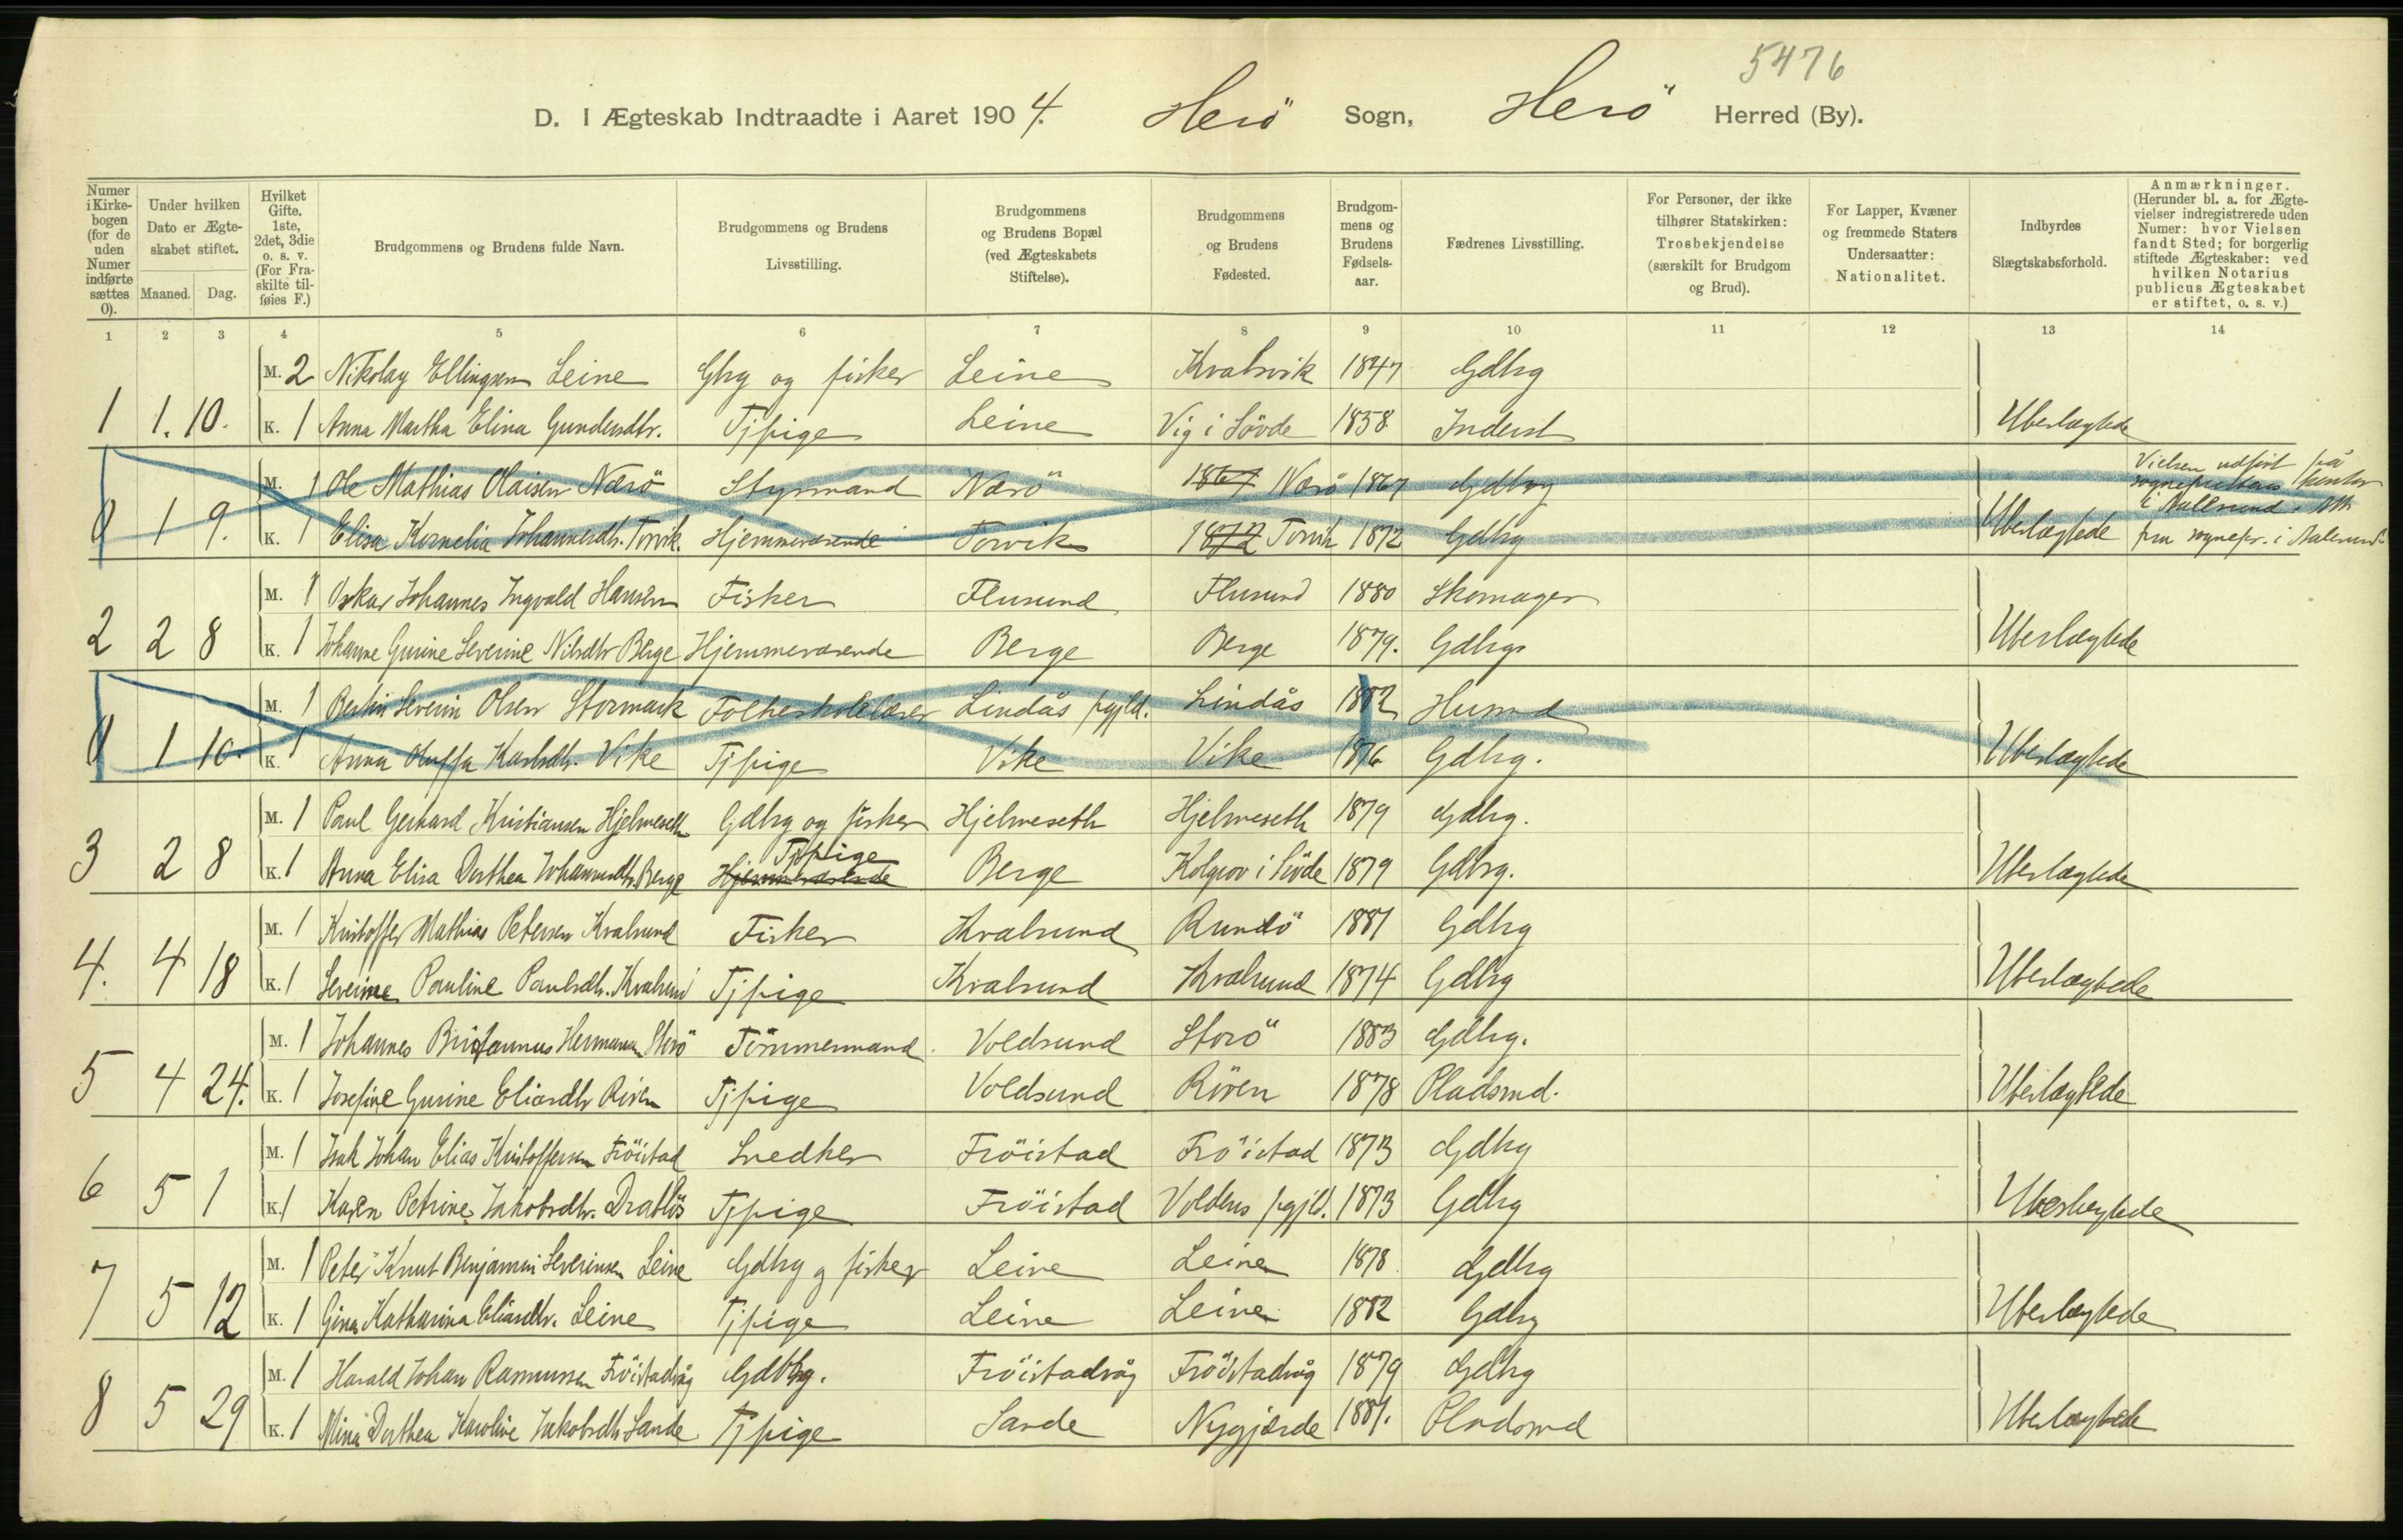 5476
D. I Ægteskab Indtraadte i Aaret 1904. Herö Sogn, Herö Herred (By).
Numer i Kirkebogen (for de uden Numer indførte sættes 0). | Under hvilken Dato er Ægteskabet stiftet. Maaned. Dag. | Hvilket Gifte. 1ste, 2det, 3die o. s. v. (For Fraskilte tilføies F.) | Brudgommens og Brudens fulde Navn. | Brudgommens og Brudens Livsstilling. | Brudgommens og Brudens Bopæl (ved Ægteskabets Stiftelse). | Brudgommens og Brudens Fødested. | Brudgommens og Brudens Fødselsaar. | Fædrenes Livsstilling. | For Personer, der ikke tilhører Statskirken: Trosbekjendelse (særskilt for Brudgom og Brud). | For Lapper, Kvæner og fremmede Staters Undersaatter: Nationalitet. | Indbyrdes Slægtskabsforhold. | Anmærkninger. (Herunder bl. a. for Ægtevielser indregistrerede uden Numer: hvor Vielsen fandt Sted; for borgerlig stiftede Ægteskaber: ved hvilken Notarius publicus Ægteskabet er stiftet, o. s. v.)
1 2 3 4 5 6 7 8 9 10 11 12 13 14
M. 2 Nikolay Ellingsen Leine Gbrg og fisker Leine Kvalsvik 1847 Gdbrg
1 1. 10. K. 1 Anna Martha Elina Gundersdtr. Tjpige Leine Vig i Sövde 1858 Inderst Ubeslægtede
M. 1 Ole Mathias Olaisen Nærö Styrmand Nærö 1867 Nærö 1867 Gdbrg Vielsen udført på sogneprestens kontor i Aalesund.
0 1 9. K. 1 Elisa Kornelia Johannesdtr. Torvik. Hjemmeværende Torvik 1872 Torvik 1872 Gdbrg Ubeslægtede fra sognepr. i Aalesund
M. 1 Oskar Johannes Ingvald Hansen Fisker Flusund Flusund 1880 Skomager
2 2 8 K. 1 Johanne Gurine Severine Nilsdtr Berge Hjemmeværende Berge Berge 1879. Gdbrg Ubeslægtede
M. 1 Bertin Severin Olsen Stormark Folkeskolelærer Lindås pgjld. Lindås 1882 Husmd
0 1 10. K. 1 Anna Oluffa Karlsdtr. Vike Tjpige Vike Vike 1876 Gdbrg. Ubeslægtede
M. 1 Paul Gerhard Kristiansen Hjelmeseth Gdbrg og fisker Hjelmeseth Hjelmeseth 1879 Gdbrg.
3 2 8 K. 1 Anna Elisa Dorthea Johannesdtr. Berge Hjemmeværende Tjpige Berge Kolgrov i Sövde 1879 Gdbrg. Ubeslægtede
M. 1 Kristoffer Mathias Petersen Kvalsund Fisker Kvalsund Rundö 1881 Gdbrg
4. 4 18 K. 1 Severine Pauline Paulsdtr. Kvalsund Tjpige Kvalsund Kvalsund 1874 Gdbrg Ubeslægtede
M. 1 Johannes Britannus Hermansen Storö Tömmermand. Voldsund Storö 1883 Gdbrg.
5 4 24. K. 1 Josefine Gurine Eliasdtr Rören Tjpige Voldsund Rören 1878 Pladsmd. Ubeslægtede
M. 1 Isak Johan Elias Kristoffersen Fröistad Snedker Fröistad Fröistad 1873 Gdbrg
6 5 1 K. 1 Karen Petrine Jakobsdtr. Drablös Tjpige Fröistad Voldens pgjld. 1873 Gdbrg Ubeslægtede
M. 1 Peter Knut Benjamin Severinsen Leine Gdbrg og fisker Leine Leine 1878 Gdbrg
7 5 12 K. 1 Gina Katharina Eliasdtr. Leine Tjpige Leine Leine 1882 Gdbrg Ubeslægtede
M. 1 Harald Johan Rasmussen Fröistadvåg Gdbrg. Fröistadvåg Fröistadvåg 1879 Gdbrg
8 5 29 K. 1 Mina Dorthea Karoline Jakobsdtr Sande Tjpige Sande Nygjerde 1881. Pladsmd Ubeslægtede